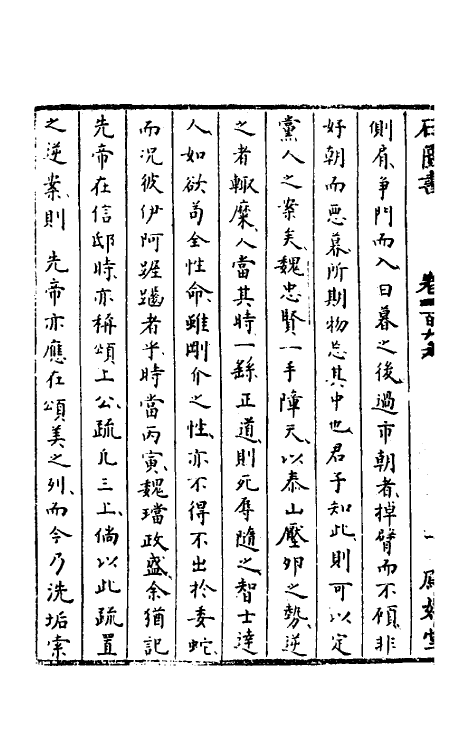 石匱書 卷一百九十 一 鳳嬉堂
側肩爭門而入日暮之後過市朝者掉臂而不顧非
好朝而惡暮所期物忘其中也君子知此則可以定
黨人之案矣魏忠賢一手障天以泰山壓卵之勢逆
之者輒糜人當其時一繇正道則死辱隨之智士達
人如欲苟全性命雖剛介之性亦不得不出於委蛇
而况彼伊阿跮躝者乎時當丙寅魏璫政盛余猶記
先帝在信邸時亦稱頌上公疏凡三上倘以此疏置
之逆案則 先帝亦應在頌美之列而今乃洗垢索